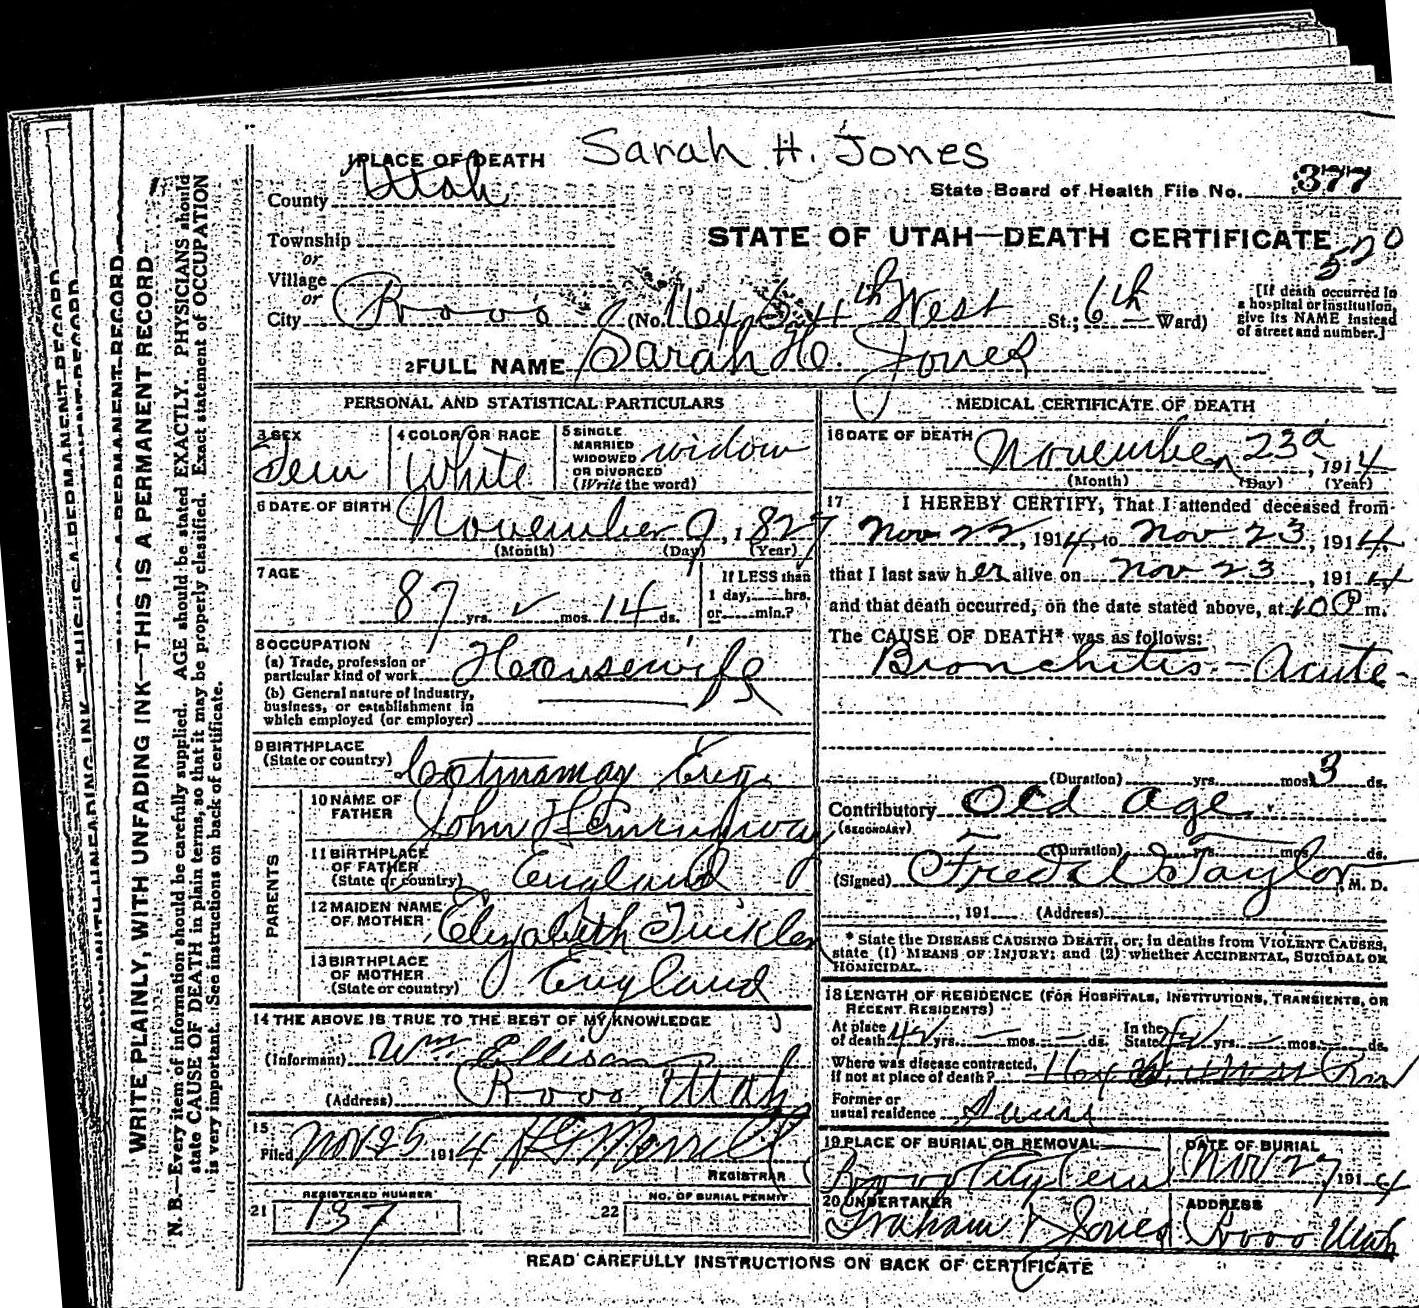 Sarah H. Jones
1 PLACE OF DEATH
County Utah
State Board of Health File No. 377
Township
or
STATE OF UTAH—DEATH CERTIFICATE
520
Village
or
City Provo (No. 4th West St.; 6th Ward)
[If death occurred in
a hospital or institution,
give its NAME instead
of street and number.]
2 FULL NAME Sarah H. Jones
PERSONAL AND STATISTICAL PARTICULARS
3 SEX Fem
4 COLOR OR RACE White
5 SINGLE
MARRIED
WIDOWED
OR DIVORCED
(Write the word) widow
6 DATE OF BIRTH November 9, 1827
(Month) (Day) (Year)
7 AGE
87 yrs. mos. 14 ds.
If LESS than
1 day, hrs.
or min.?
8 OCCUPATION
(a) Trade, profession or
particular kind of work Housewife
(b) General nature of industry,
business, or establishment in
which employed (or employer)
9 BIRTHPLACE
(State or country) Eng.
PARENTS
10 NAME OF
FATHER John Hemingway
11 BIRTHPLACE
OF FATHER
(State or country) England
12 MAIDEN NAME
OF MOTHER Elizabeth Tinkler
13 BIRTHPLACE
OF MOTHER
(State or country) England
14 THE ABOVE IS TRUE TO THE BEST OF MY KNOWLEDGE
(Informant) Wm Ellison
(Address) Provo Utah
15
Filed Nov 25 1914 Merrill
REGISTRAR
REGISTERED NUMBER
21 137
NO. OF BURIAL PERMIT
22
MEDICAL CERTIFICATE OF DEATH
16 DATE OF DEATH November 23d, 1914
(Month) (Day) (Year)
17 I HEREBY CERTIFY, That I attended deceased from
Nov 22, 1914, to Nov 23, 1914,
that I last saw her alive on Nov 23, 1914
and that death occurred, on the date stated above, at m.
The CAUSE OF DEATH* was as follows:
Bronchitis - Acute -
(Duration) yrs. mos. 3 ds.
Contributory Old age
(SECONDARY)
(Duration) yrs. mos. ds.
(Signed) Fred Taylor, M. D.
, 191 (Address)
* State the DISEASE CAUSING DEATH, or, in deaths from VIOLENT CAUSES,
state (1) MEANS OF INJURY; and (2) whether ACCIDENTAL, SUICIDAL OR
HOMICIDAL.
18 LENGTH OF RESIDENCE (FOR HOSPITALS, INSTITUTIONS, TRANSIENTS, OR
RECENT RESIDENTS)
At place
of death 42 yrs. — mos. — ds.
In the
State yrs. mos. ds.
Where was disease contracted,
if not at place of death?
Former or
usual residence
19 PLACE OF BURIAL OR REMOVAL
Provo City Cem
DATE OF BURIAL
Nov 27 1914
20 UNDERTAKER
Graham & Jones
ADDRESS
Provo Utah
READ CAREFULLY INSTRUCTIONS ON BACK OF CERTIFICATE
WRITE PLAINLY, WITH UNFADING INK—THIS IS A PERMANENT RECORD
N. B.—Every item of information should be carefully supplied. AGE should be stated EXACTLY. PHYSICIANS should
state CAUSE OF DEATH in plain terms, so that it may be properly classified. Exact statement of OCCUPATION
is very important. See instructions on back of certificate.